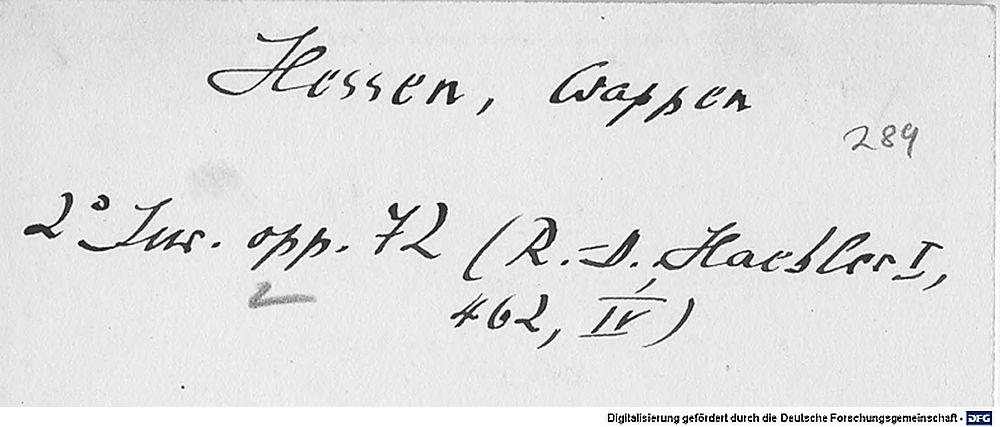 Hessen, Wappen
289
2° Jur. opp. 72 (R.=D., Haebler I,
462, IV)
Digitalisierung gefördert durch die Deutsche Forschungsgemeinschaft - DFG